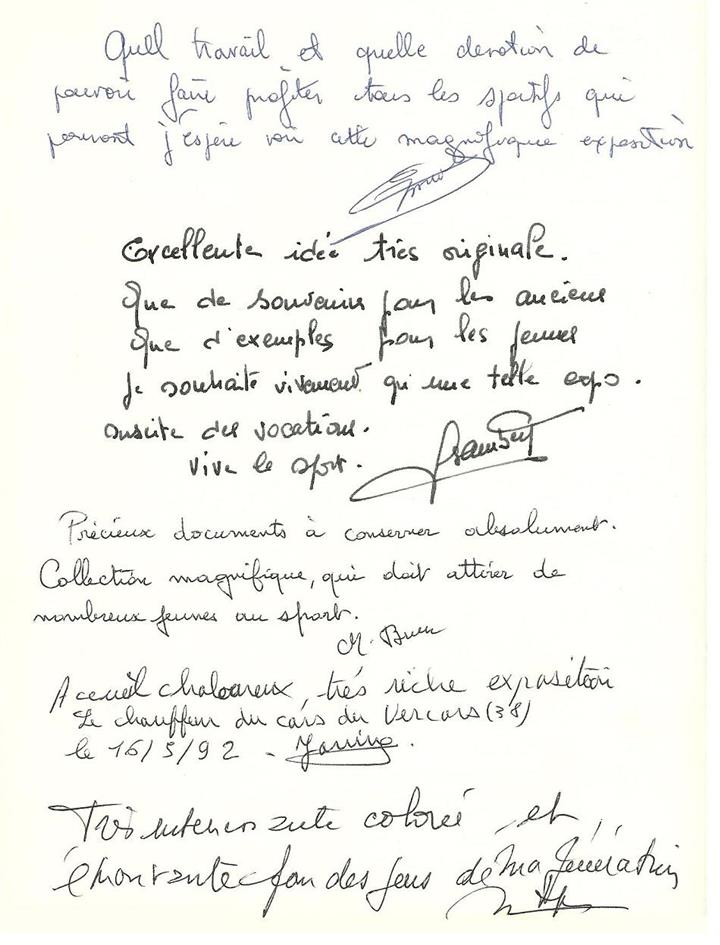 Quel travail et quelle devotion de
pouvoir faire profiter tous les sportifs qui
pourront j'espère voir cette magnifique exposition
Excellente idée très originale.
Que de souvenirs pour les anciens
Que d'exemples pour les jeunes
Je souhaite vivement qu'une telle expo.
suscite des vocations.
vive le sport.
Précieux documents à conserver absolument.
Collection magnifique, qui doit attirer de
nombreux jeunes au sport.
M.
Accueil chaloureux, très riche exposition
Le chauffeur du cars du Vercors (38)
le 16/5/92 -
Très interessante colorée et
émouvante pour des gens de ma génération